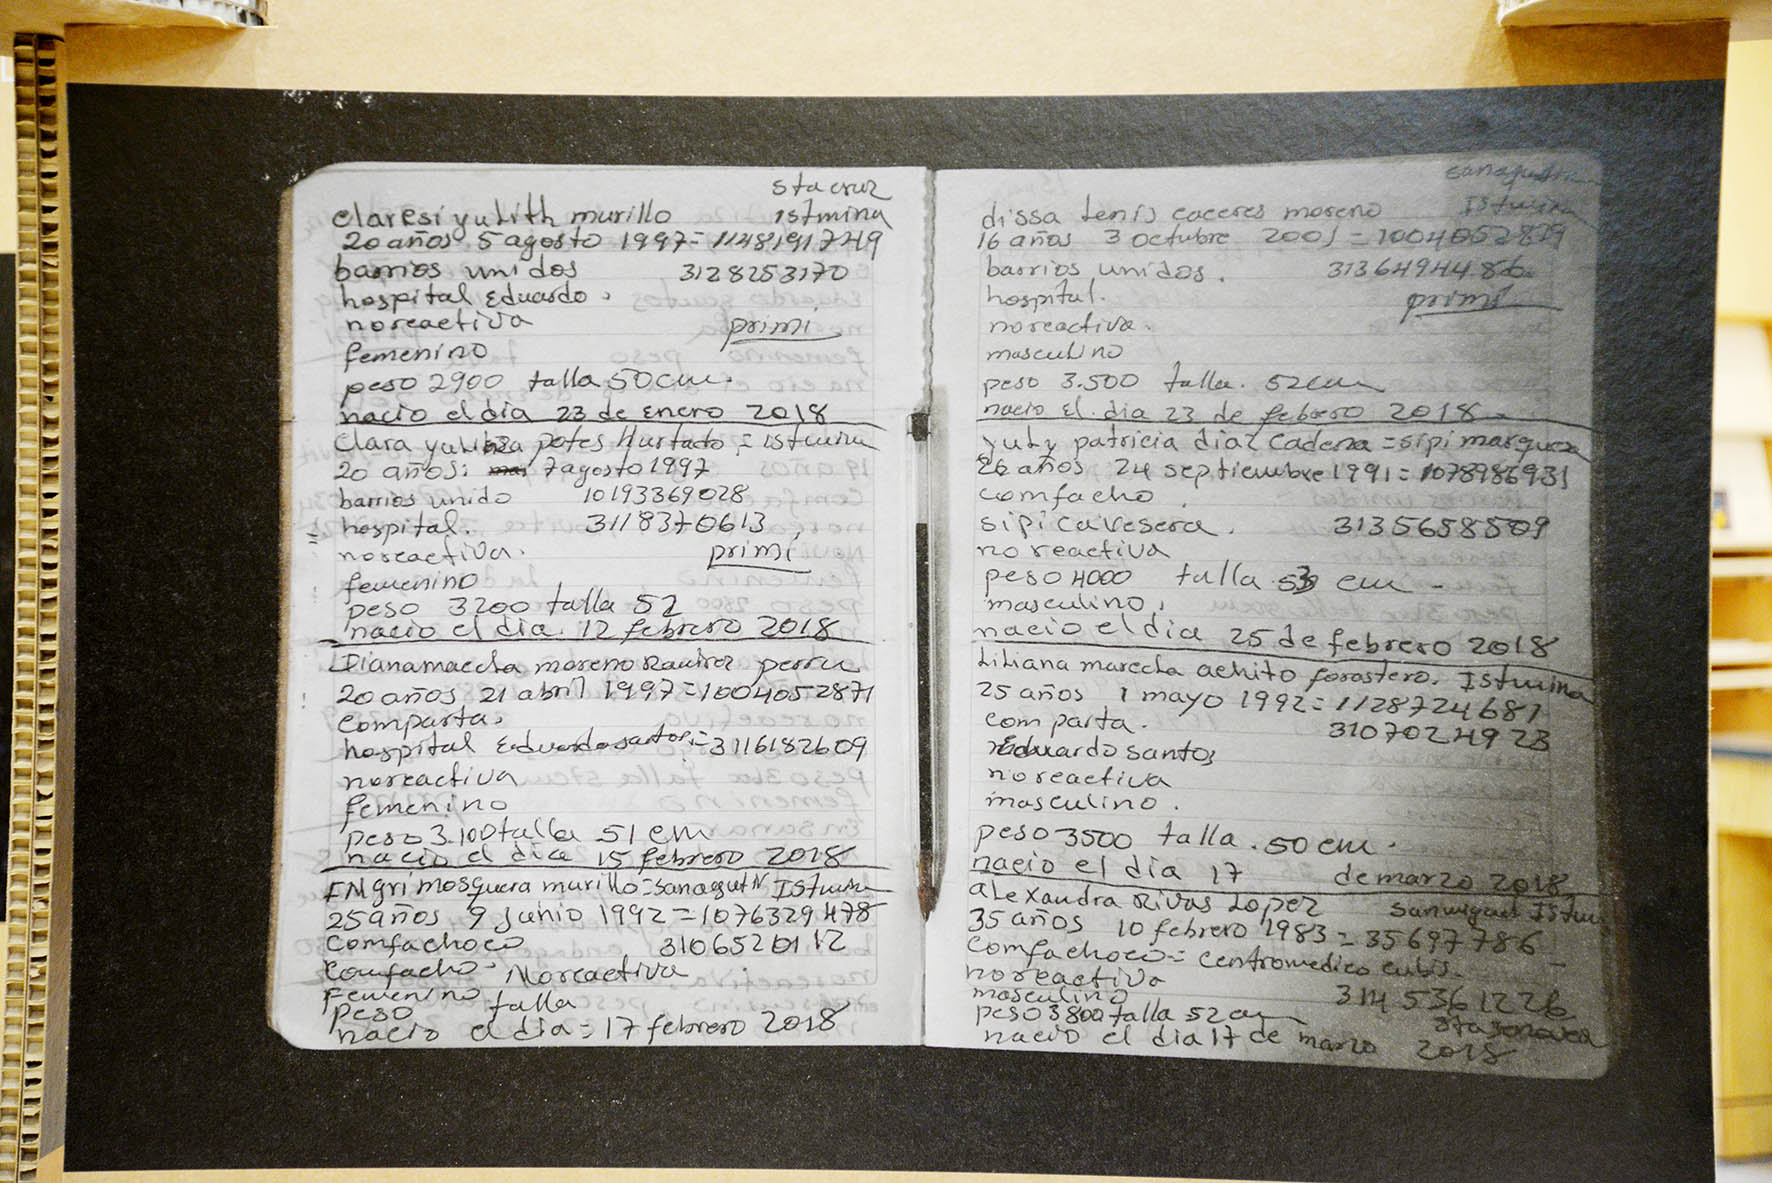 sta cruz
claresi yulith murillo istmina
20 años 5 agosto 1997=1148191749
barrios unidos 3128253170
hospital Eduardo.
noreactiva primi
femenino
peso 2900 talla 50cm.
nacio el dia 23 de Enero 2018
Clara potes Hurtado = istmina
20 años: 7agosto 1997
barrios unido 10193369028
hospital. 3118370613
noreactiva. primi
femenino
peso 3200 talla 52
nacio el dia. 12 febrero 2018
Dianamarcela moreno Ramirez
20 años 21 abril 1997=1004052871
comparta.
hospital Eduardosantos=3116182609
noreactiva
femenino
peso 3.100talla 51 cm
nacio el dia 15 febrero 2018
mosquera murillo=sanagutin Istmina
25años 9 junio 1992=1076329478
comfachoco 3106520112
comfacho- Noreactiva
Femenino
peso talla
nacio el dia=17 febrero 2018
Istmina
dissa lenis caceres moreno
16 años 3 octubre 2001=1004052819
barrios unidos. 3136494486
hospital. primi
noreactiva.
masculino
peso 3.500 talla. 52cm
nacio El. dia 23 de febrero 2018
yuly patricia diaz cadena =sipi
26 años 24 septiembre 1991=1078986931
comfacho
sipi 3135658509
no reactiva
peso 4000 talla 53 cm -
masculino.
nacio el dia 25 de febrero 2018
Liliana marcela achito forastero. Istmina
25 años 1 mayo 1992=1128724681
comparta. 3107024923
Eduardo santos
noreactiva
masculino.
peso 3500 talla. 50 cm.
nacio el dia 17 de marzo 2018
alexandra Rivas Lopez sanmiguel
35 años 10 febrero 1983=35697786
comfachoco= centromedico cubis.
noreactiva
masculino 3145361226
peso 3800 talla 52cm
nacio el dia 17 de marzo 2018